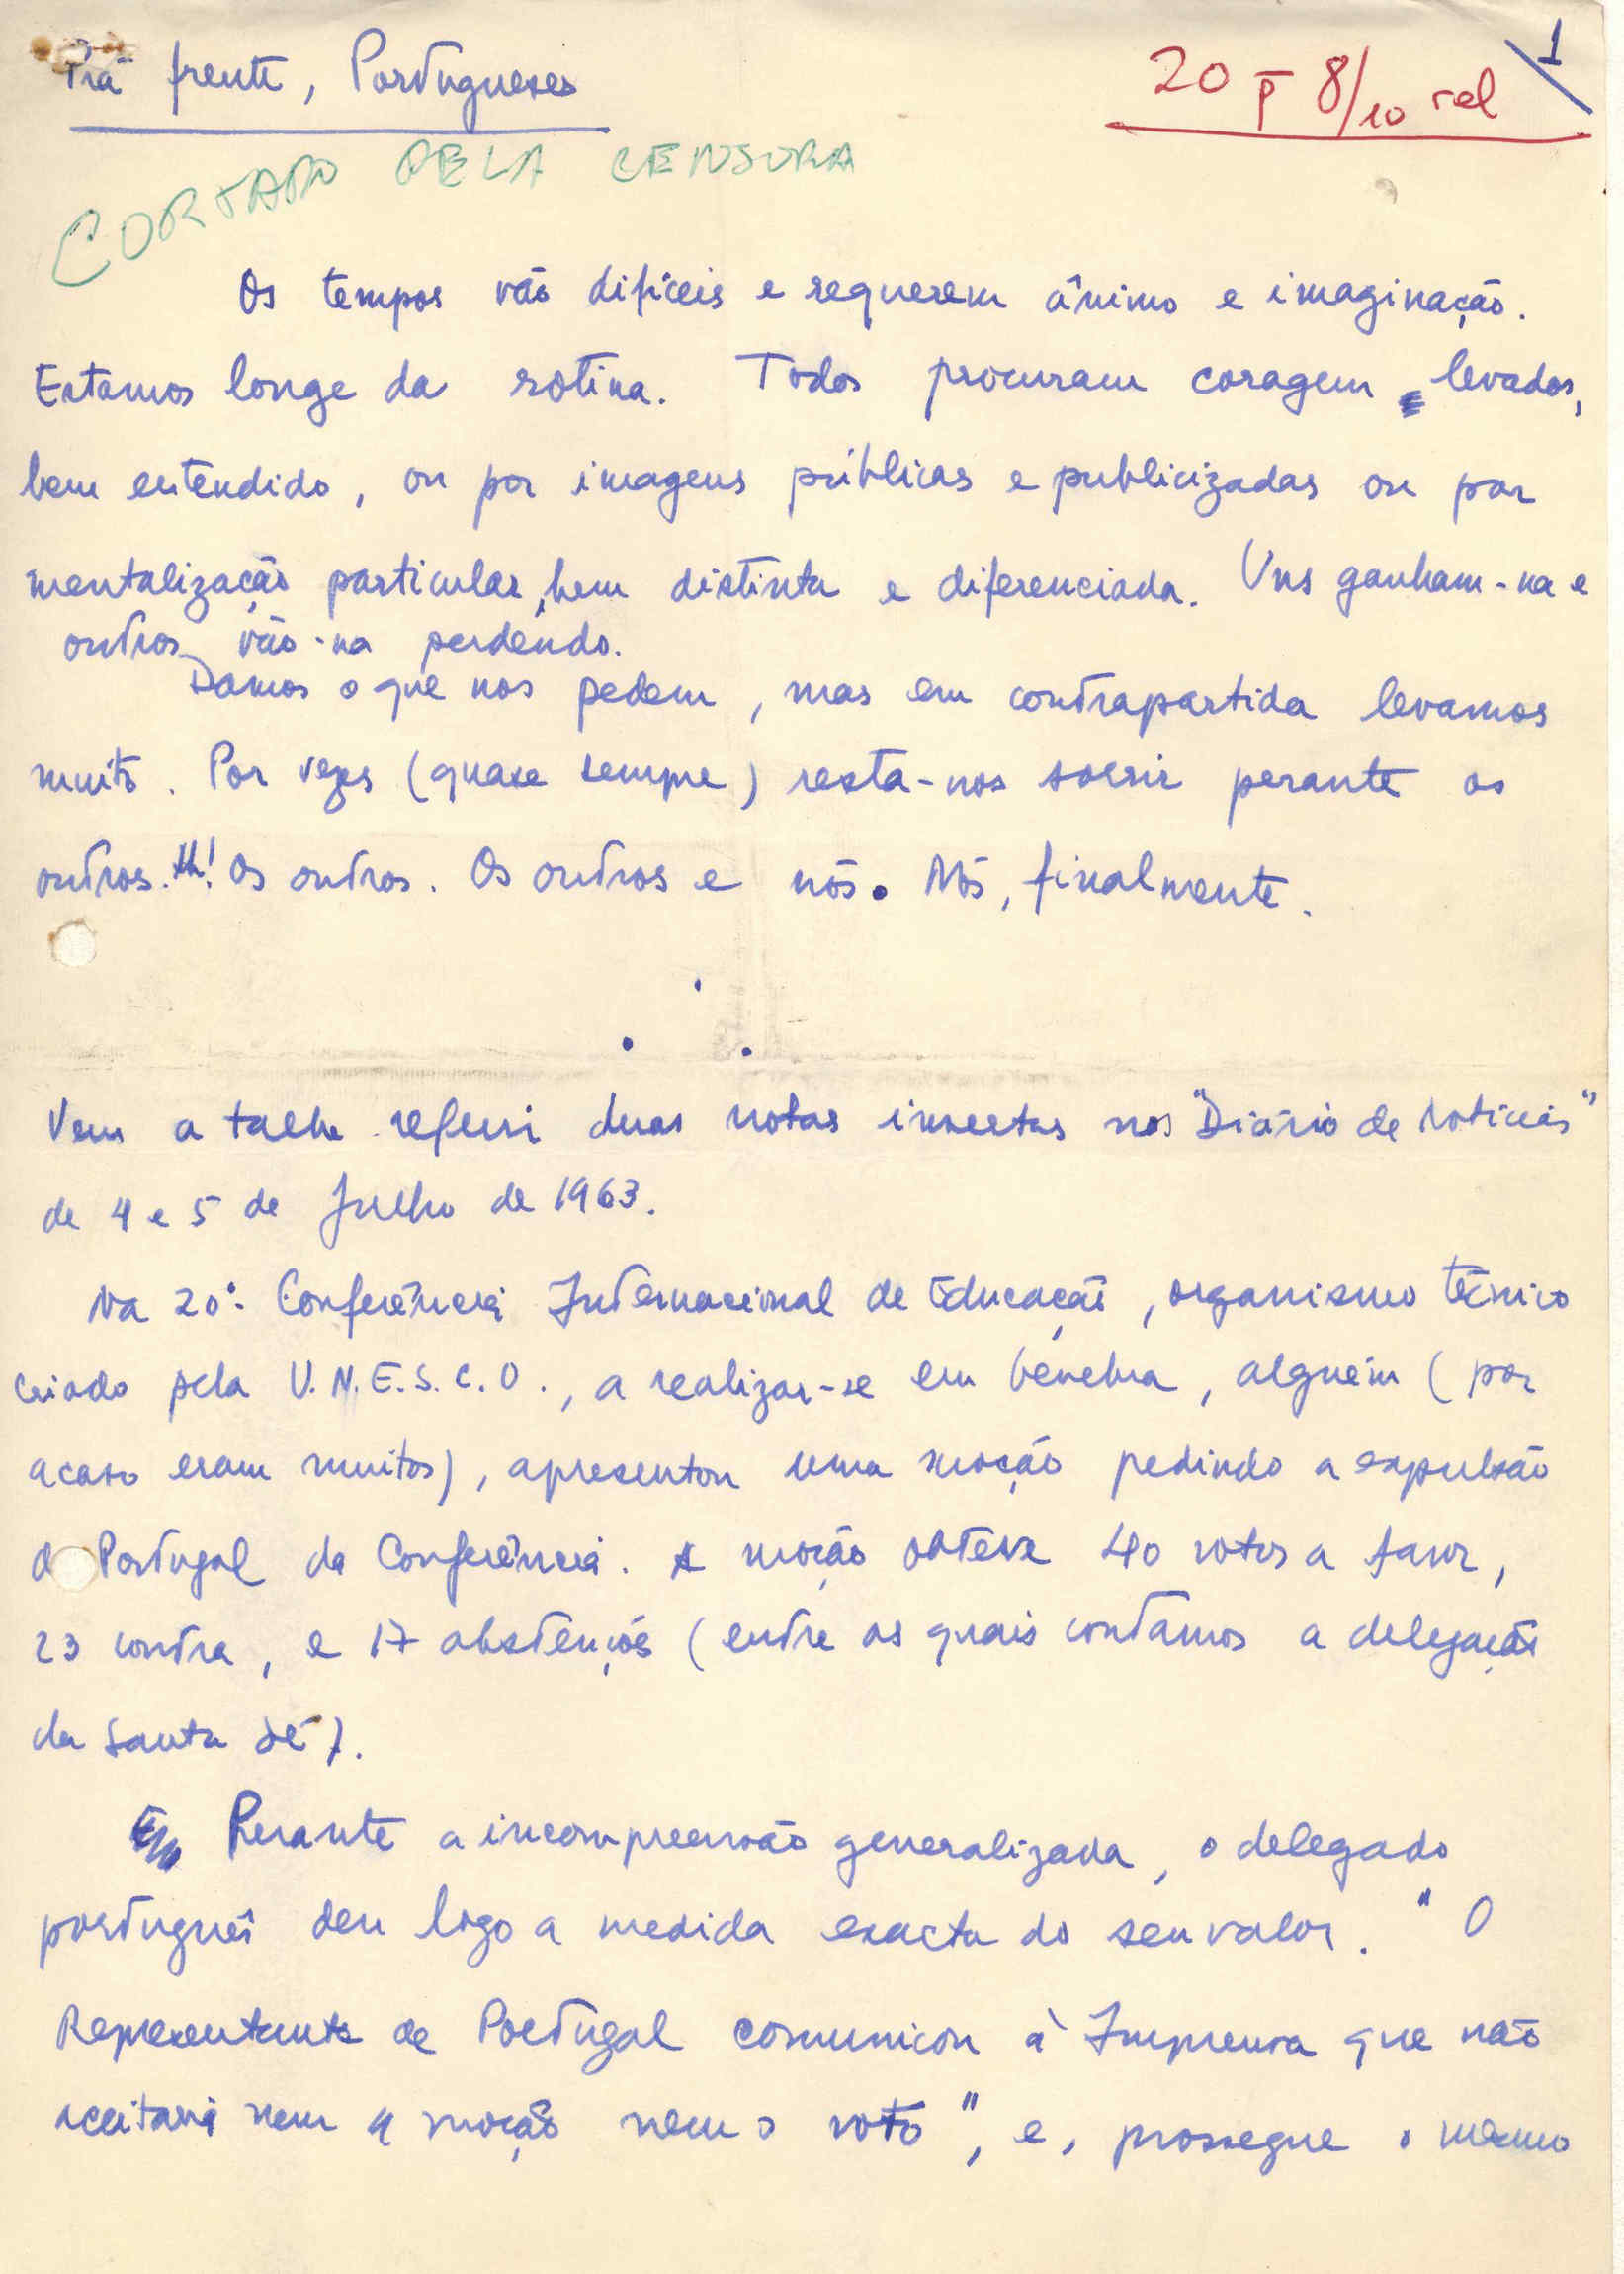 Prá frente, Portugueses
20 p 8/10 rel
1
CORTADO PELA CENSURA
Os tempos vão difíceis e requerem ânimo e imaginação.
Estamos longe da rotina. Todos procuram coragem levados,
bem entendido, ou por imagens públicas e publicizadas ou por
mentalização particular, bem distinta e diferenciada. Uns ganham-na e
outros vão-na perdendo.
Damos o que nos pedem, mas em contrapartida levamos
muito. Por vezes (quase sempre) resta-nos sorrir perante os
outros. Ah! Os outros. Os outros e nós. Nós, finalmente.
Vem a talhe referir duas notas insertas nos "Diário de Notícias"
de 4 e 5 de Julho de 1963.
Na 20ª Conferência Internacional de Educação, organismo técnico
criado pela U.N.E.S.C.O., a realizar-se em Genebra, alguém (por
acaso eram muitos), apresentou uma moção pedindo a expulsão
de Portugal da Conferência. A moção obteve 40 votos a favor,
23 contra, e 17 abstenções (entre as quais contamos a delegação
da Santa Sé).
Perante a incompreensão generalizada, o delegado
português deu logo a medida exacta do seu valor. "O
Representante de Portugal comunicou à Imprensa que não
aceitaria nem a moção nem o voto", e, prossegue o mesmo